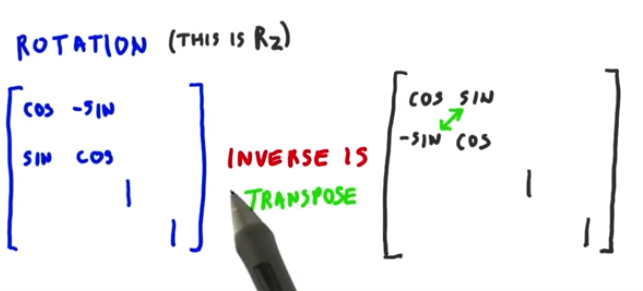 ROTATION (THIS IS RZ)
COS -SIN
SIN COS
1
1
INVERSE IS
TRANSPOSE
COS SIN
-SIN COS
1
1